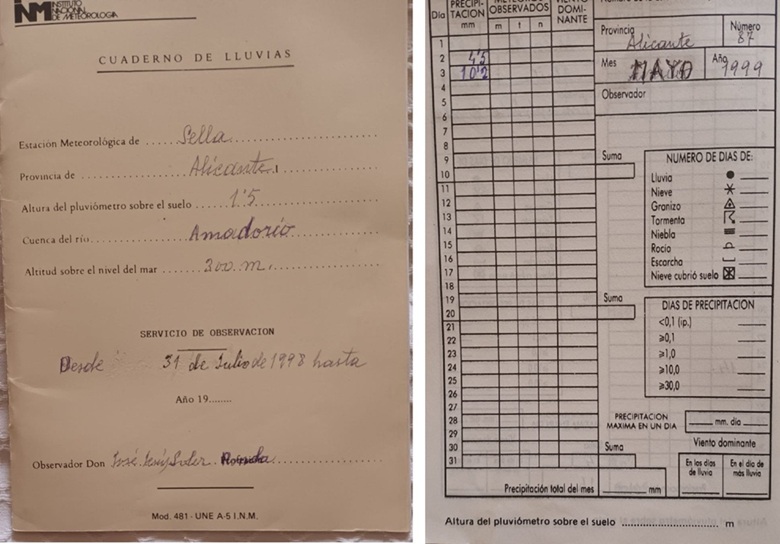 INM INSTITUTO NACIONAL DE METEOROLOGIA
CUADERNO DE LLUVIAS
Estación Meteorológica de Sella
Provincia de Alicante
Altura del pluviómetro sobre el suelo 1'5
Cuenca del río Amadorio
Altitud sobre el nivel del mar 300 m.
SERVICIO DE OBSERVACION
Desde 31 de Julio de 1998 hasta
Año 19........
Observador Don José Jesús Soler
Mod. 481 - UNE A-5 I.N.M.
Día PRECIPITACION mm OBSERVADOS m t n DOMINANTE
1
2 4'5
3 10'2
4
5
6
7
8
9
10
11
12
13
14
15
16
17
18
19
20
21
22
23
24
25
26
27
28
29
30
31
Precipitación total del mes mm
Provincia Alicante Número 87
Mes MAYO Año 1999
Observador
Suma
NUMERO DE DIAS DE:
Lluvia
Nieve
Granizo
Tormenta
Niebla
Rocío
Escarcha
Nieve cubrió suelo
Suma
DIAS DE PRECIPITACION
<0,1 (ip.)
≥0,1
≥1,0
≥10,0
≥30,0
PRECIPITACION MAXIMA EN UN DIA mm. día
Suma
Viento dominante
En los días de lluvia
En el día de más lluvia
Altura del pluviómetro sobre el suelo m